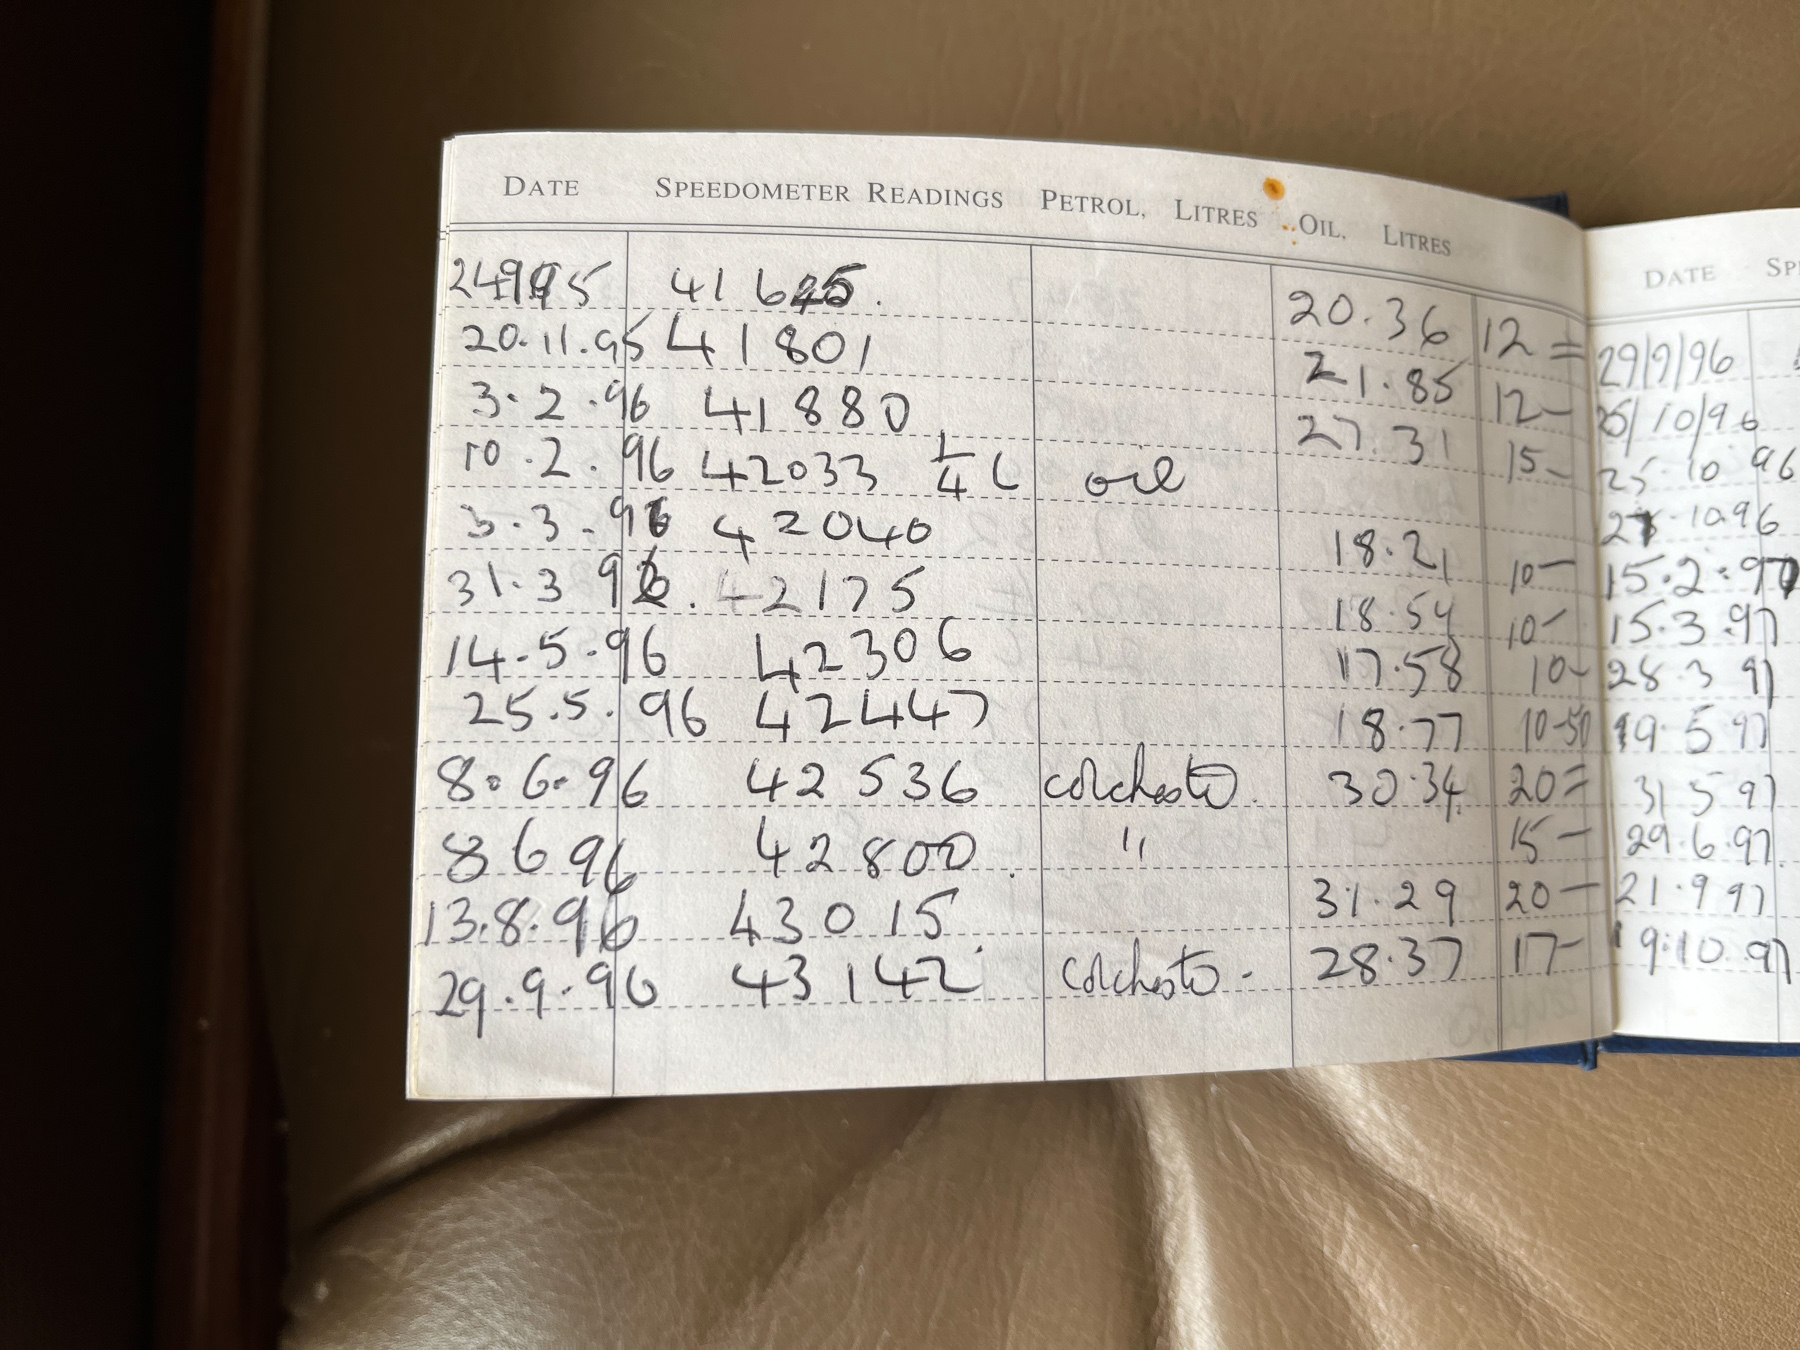 DATE SPEEDOMETER READINGS PETROL, LITRES OIL, LITRES
24995 41645. 20.36 12=
20.11.95 41801 21.85 12-
3.2.96 41880 27.31 15-
10.2.96 42033 1/4 L oil
3.3.96 42040 18.21 10-
31.3 96. 42175 18.54 10-
14.5.96 42306 17.58 10-
25.5.96 42447 18.77 10-50
8.6.96 42536 Colchester. 30.34. 20=
8 6 96 42800. " 15-
13.8.96 43015. 31.29 20-
29.9.96 43142 Colchester- 28.37 17-
DATE
29/9/96
25/10/96
25.10 96
10.96
15.2.97
15.3.97
28.3 97
19.5 97
31 5 97
29.6.97.
21.9 97
19.10.97